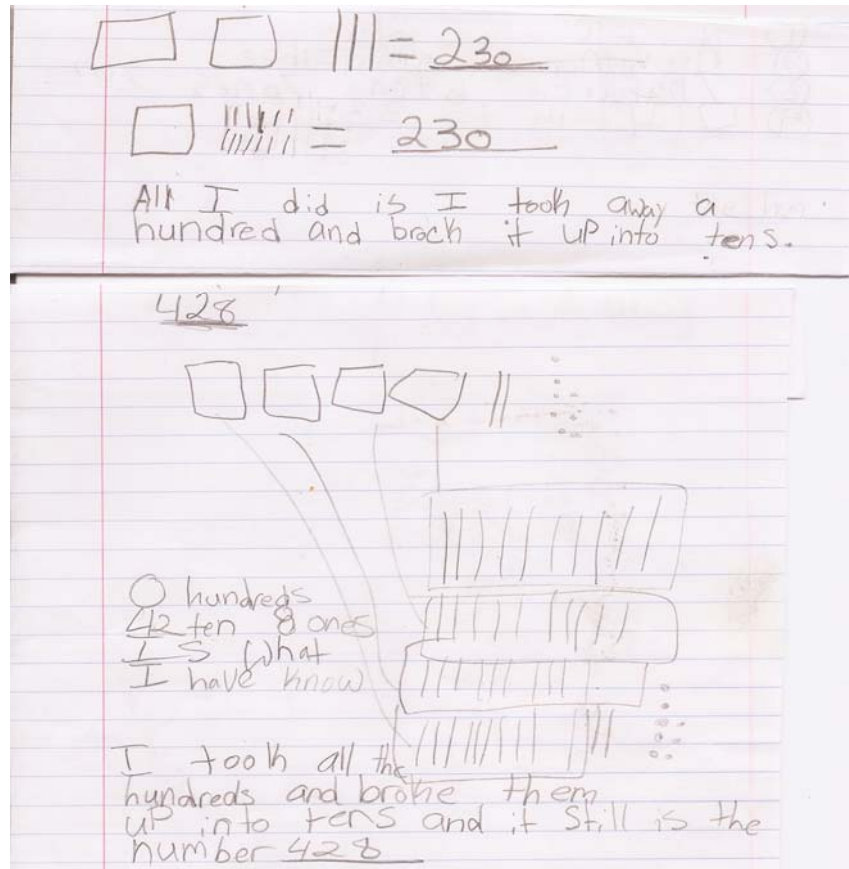 = 230
= 230
All I did is I took away a
hundred and broch it up into tens.
428
0 hundreds
42 ten 8 ones
I S what
I have know
I took all the
hundreds and broke them
up into tens and it Still is the
number 428